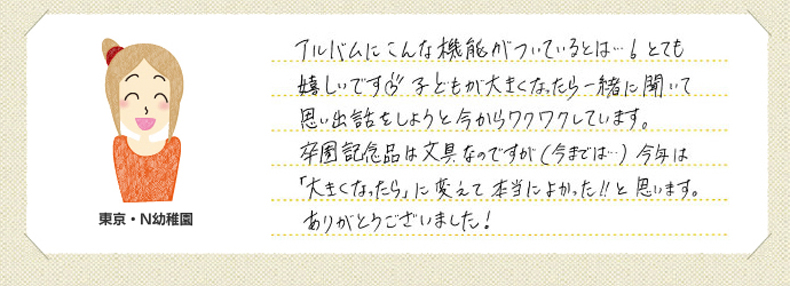 アルバムにこんな機能がついているとは…!とても
嬉しいです 子どもが大きくなったら一緒に聞いて
思い出話をしようと今からワクワクしています。
卒園記念品は文具なのですが(今までは…)今年は
「大きくなったら」に変えて本当によかった!!と思います。
ありがとうございました!
東京・N幼稚園